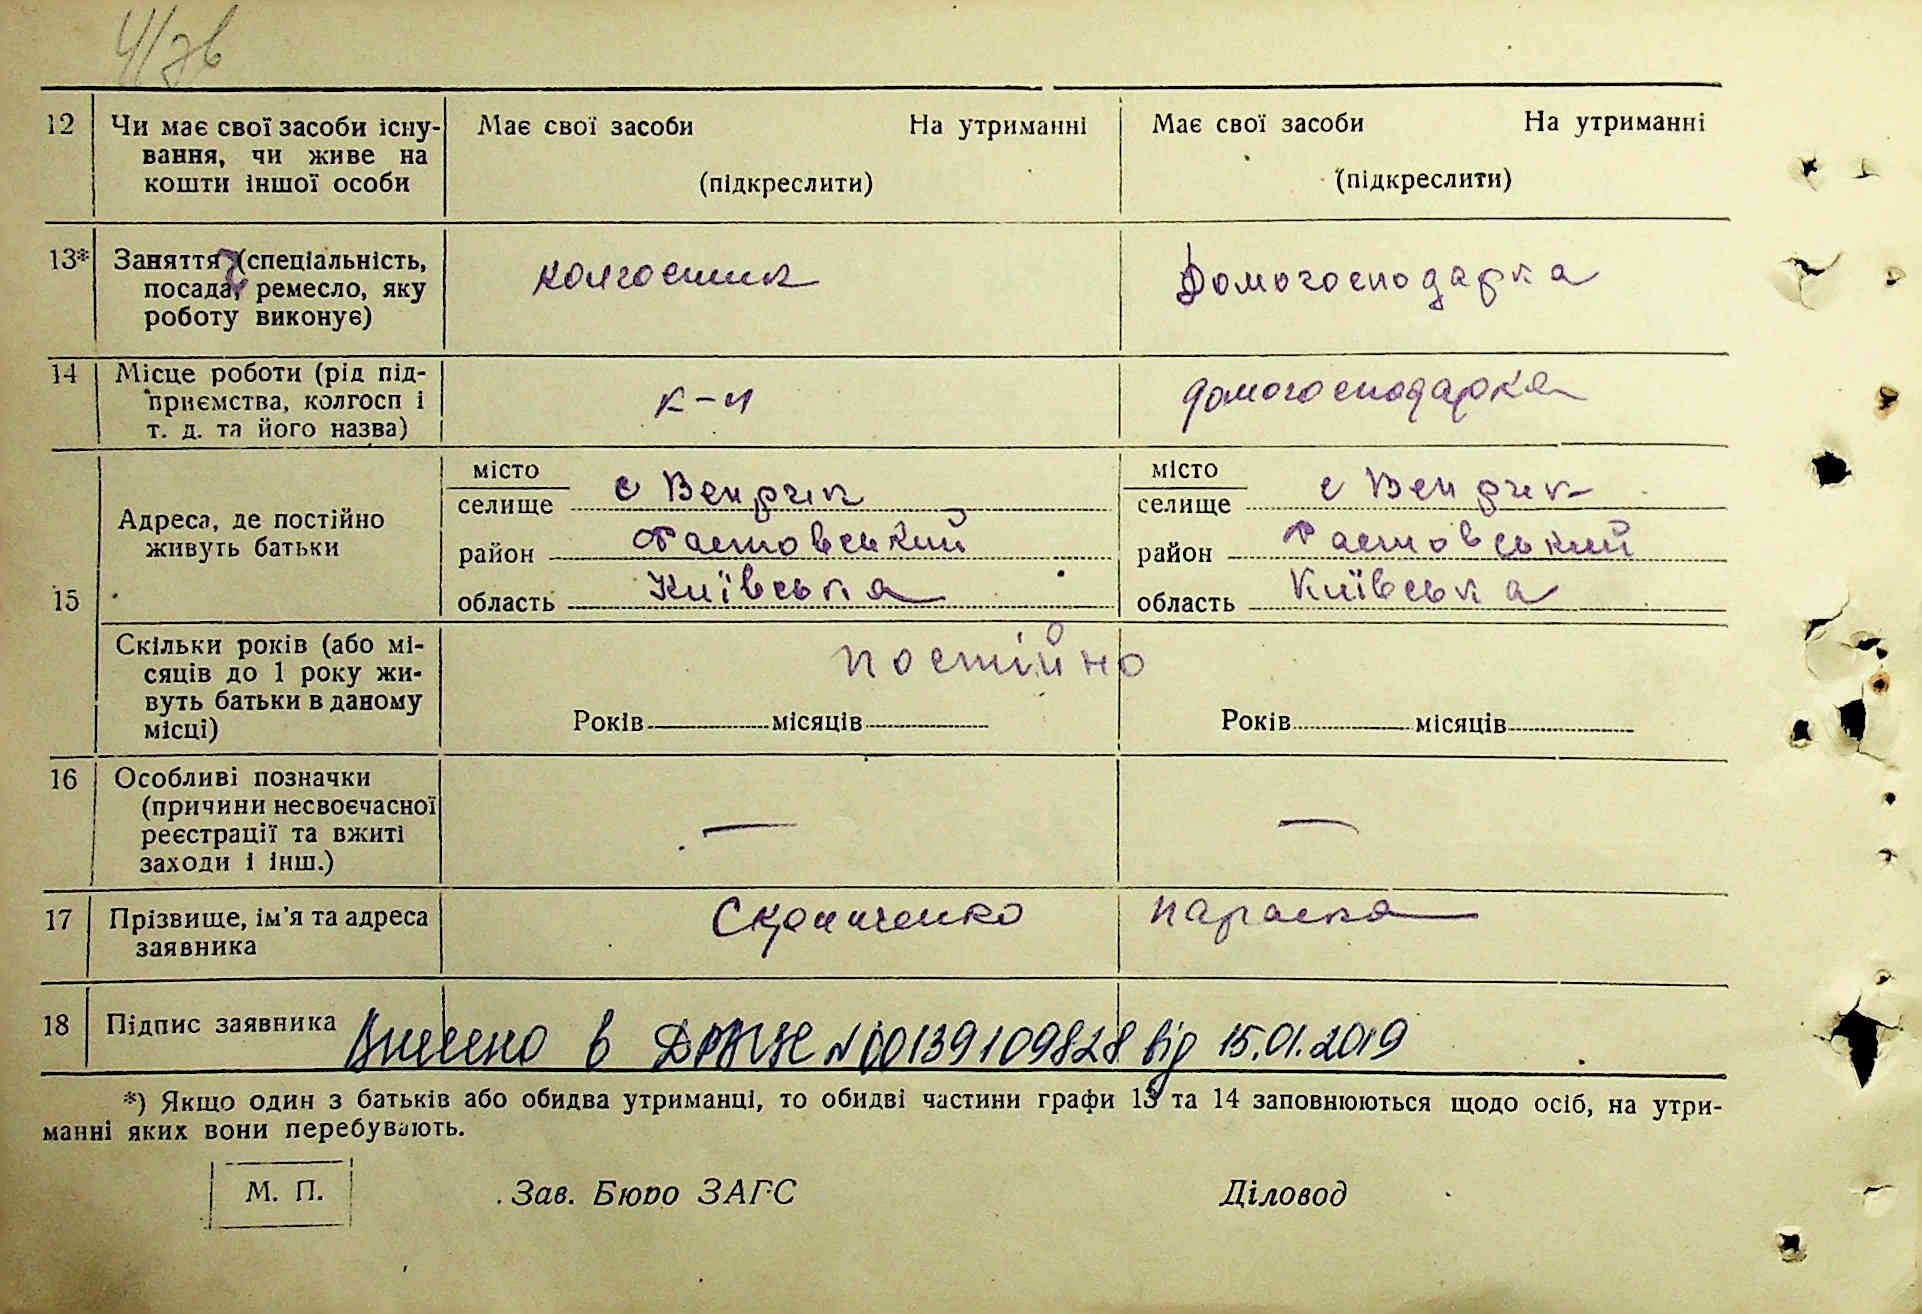 12 Чи має свої засоби існу- Має свої засоби На утриманні Має свої засоби На утриманні
вання, чи живе на
кошти іншої особи (підкреслити) (підкреслити)
13* Заняття (спеціальність, колгоспник Домогосподарка
посада, ремесло, яку
роботу виконує)
14 Місце роботи (рід під- домогосподарка
приємства, колгосп і к-п
т. д. та його назва)
15 Адреса, де постійно
живуть батьки
місто
селище с Вендрик
район Фастовський
область Київська
місто
селище с Вендрик
район Фастовський
область Київська
Скільки років (або мі-
сяців до 1 року жи- постійно
вуть батьки в даному
місці) Років місяців Років місяців
16 Особливі позначки
(причини несвоєчасної
реєстрації та вжиті — —
заходи і інш.)
17 Прізвище, ім'я та адреса Параска
заявника
18 Підпис заявника Внесено в ДРАЦС №00139109828 від 15.01.2019
*) Якщо один з батьків або обидва утриманці, то обидві частини графи 13 та 14 заповнюються щодо осіб, на утри-
манні яких вони перебувають.
М. П. Зав. Бюро ЗАГС Діловод